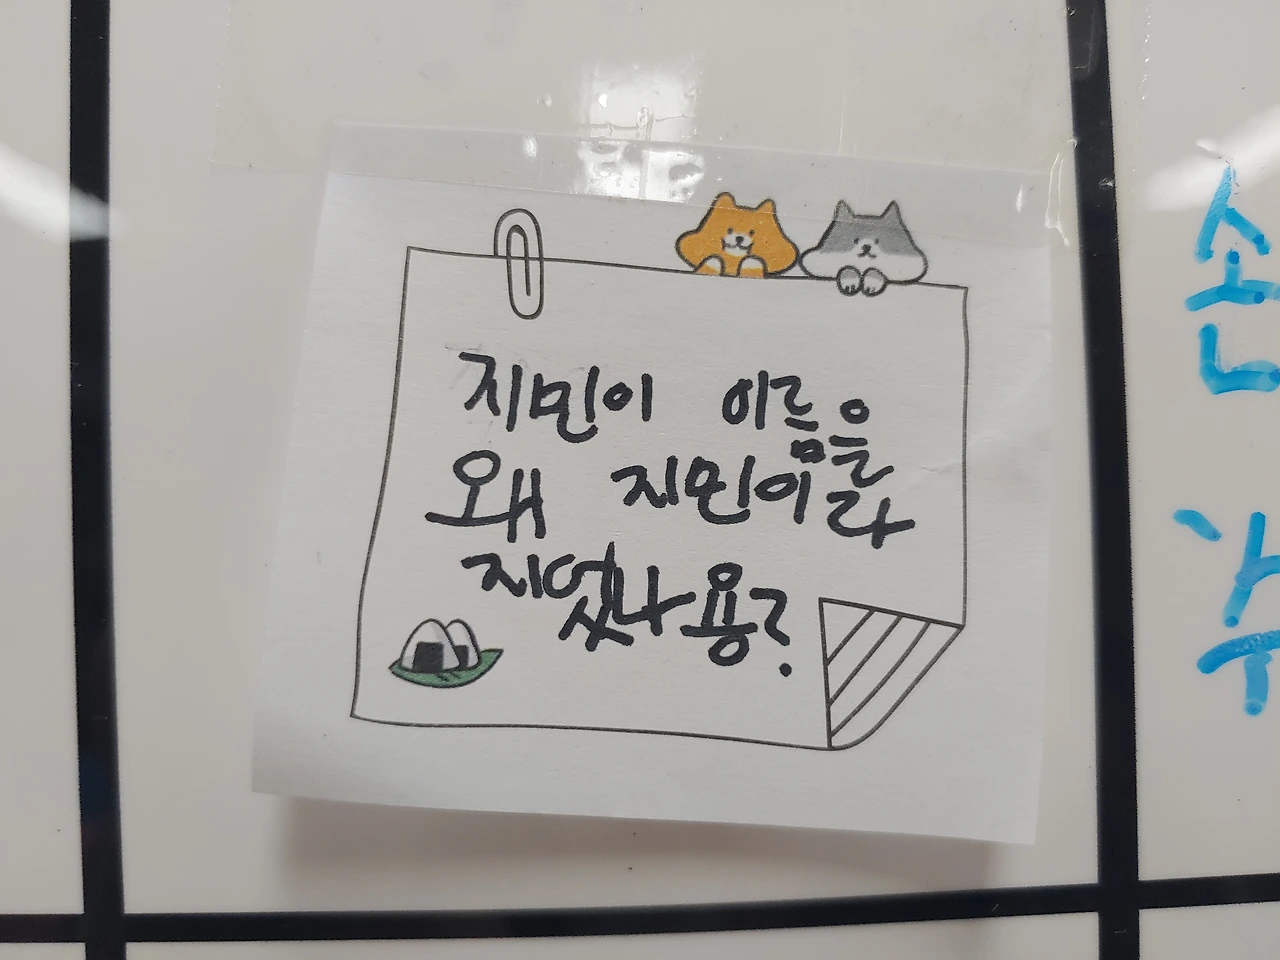 지민이 이름을
왜 지민이라
지었나용?
손